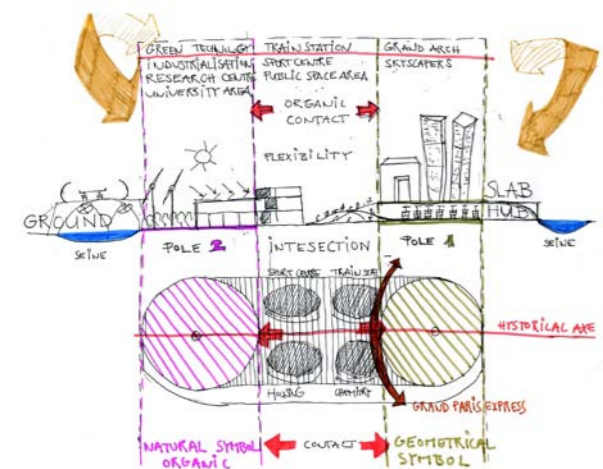 GREEN TECHNOLOGY
INDUSTRIALISATION
RESEARCH CENTRE
UNIVERSITY AREA
TRAIN STATION
SPORT CENTRE
PUBLIC SPACE AREA
GRAND ARCH
SKYSCAPERS
ORGANIC
CONTACT
FLEXIBILITY
GROUND
SLAB
HUB
SEINE
POLE 2
INTESECTION
POLE 1
SEINE
SPORT CENTRE
TRAIN STAT
HYSTORICAL AXE
HOUSING
GRAND PARIS EXPRESS
NATURAL SYMBOL
ORGANIC
CONTACT
GEOMETRICAL
SYMBOL